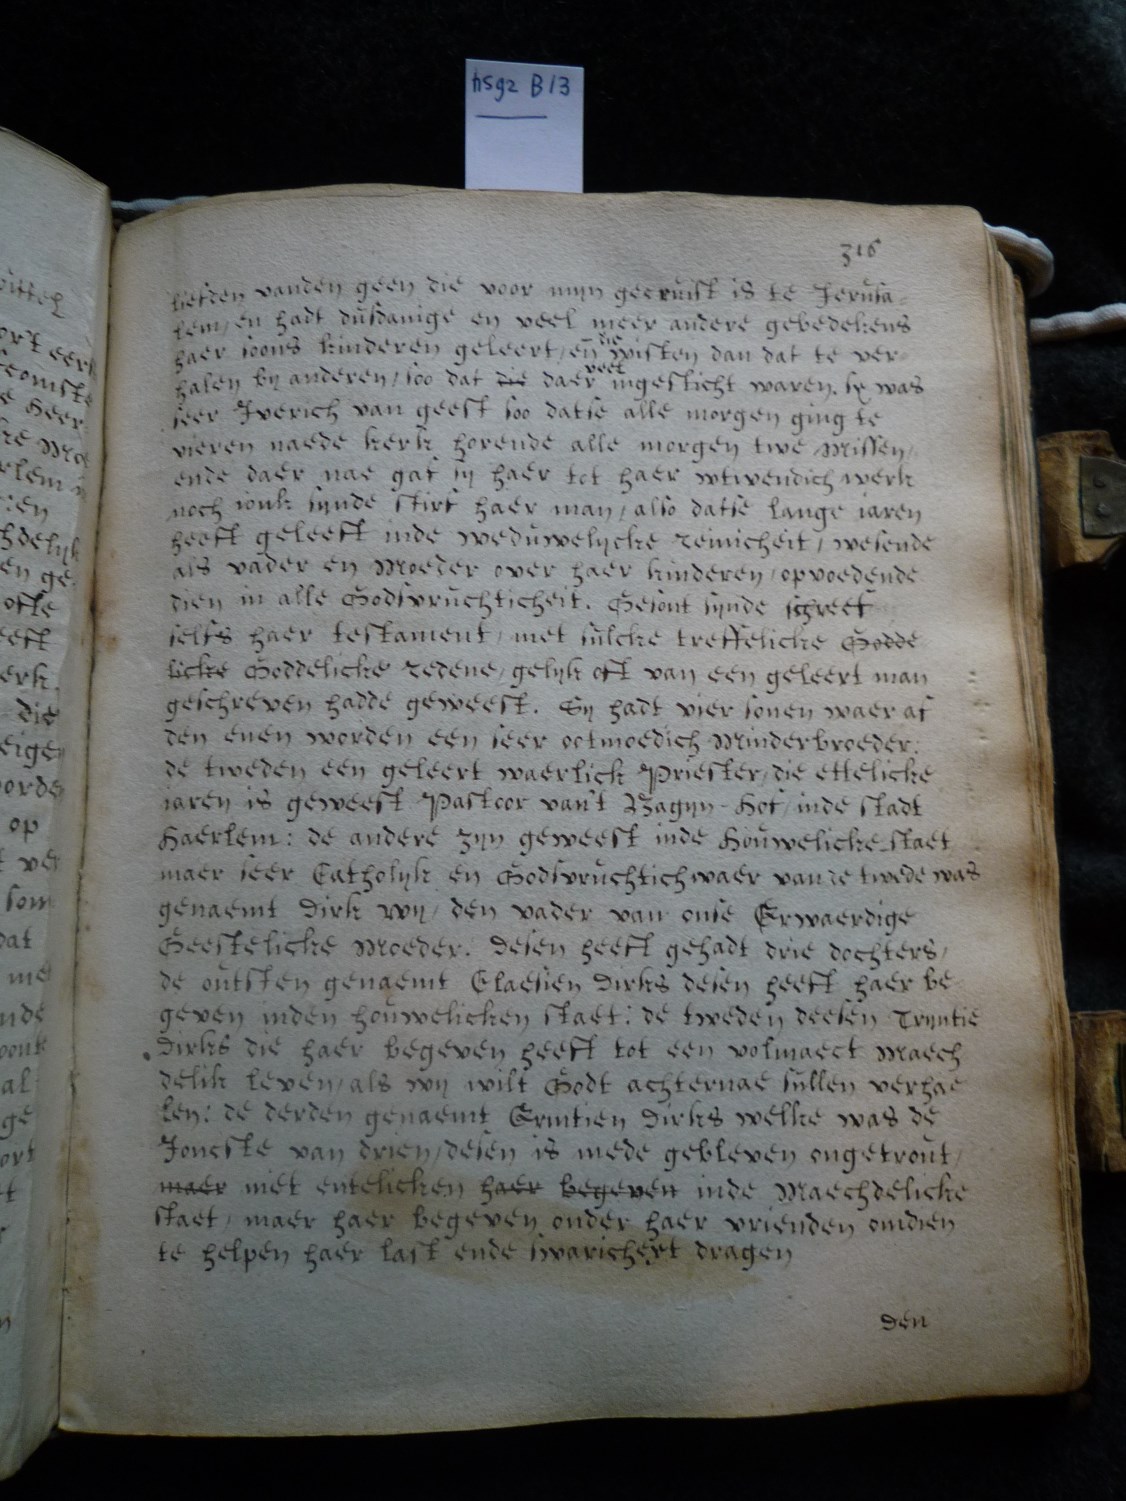 hsgz B13
316
liefden vanden geen die voor mijn gecruist is te Jerusa-
lem, en hadt dusdanige en veel meer andere gebedekens
haer soons kinderen geleert, en die wisten dan dat te ver-
halen bij anderen, soo dat die daer veel ingesticht waren. sy was
seer Jverich van geest soo datse alle morgen ging te
vieren naede kerk horende alle morgen twe Missen,
ende daer nae gaf sij haer tot haer wtwendich werk
noch ionk sijnde stirf haer man, also datse lange iaren
heeft geleeft inde weduwelijcke reinicheit, wesende
als vader en Moeder over haer kinderen, opvoedende
dien in alle Godsvruchticheit. Gesont sijnde schreef
selfs haer testament, met sulcke treffelicke Godde
licke Goddelicke redene, gelijk oft van een geleert man
geschreven hadde geweest. Sij hadt vier sonen waer af
den enen worden een seer ootmoedich Minderbroeder:
de tweden een geleert waerlick Priester, die ettelicke
iaren is geweest Pastoor van't Bagijn-Hof, inde stadt
Haerlem: de andere zijn geweest inde Houwelicke staet
maer seer Catholijk en Godsvruchtich waer van de twede was
genaemt Dirk wij, den vader van onse Erwaerdige
Geestelicke Moeder. Desen heeft gehadt drie dochters,
de outsten genaemt Claesien Dirks desen heeft haer be-
geven inden houwelicken staet: de tweden deesen Trijntie
Dirks die haer begeven heeft tot een volmaect Maech
delik leven, als wij wilt Godt achternae sullen verhae
len: de derden genaemt Ermtien Dirks welke was de
Joncste van drien, desen is mede gebleven ongetrout,
maer niet entelicken haer begeven inde Maechdelicke
staet, maer haer begeven onder haer vrienden omdien
te helpen haer last ende swaricheyt dragen
den